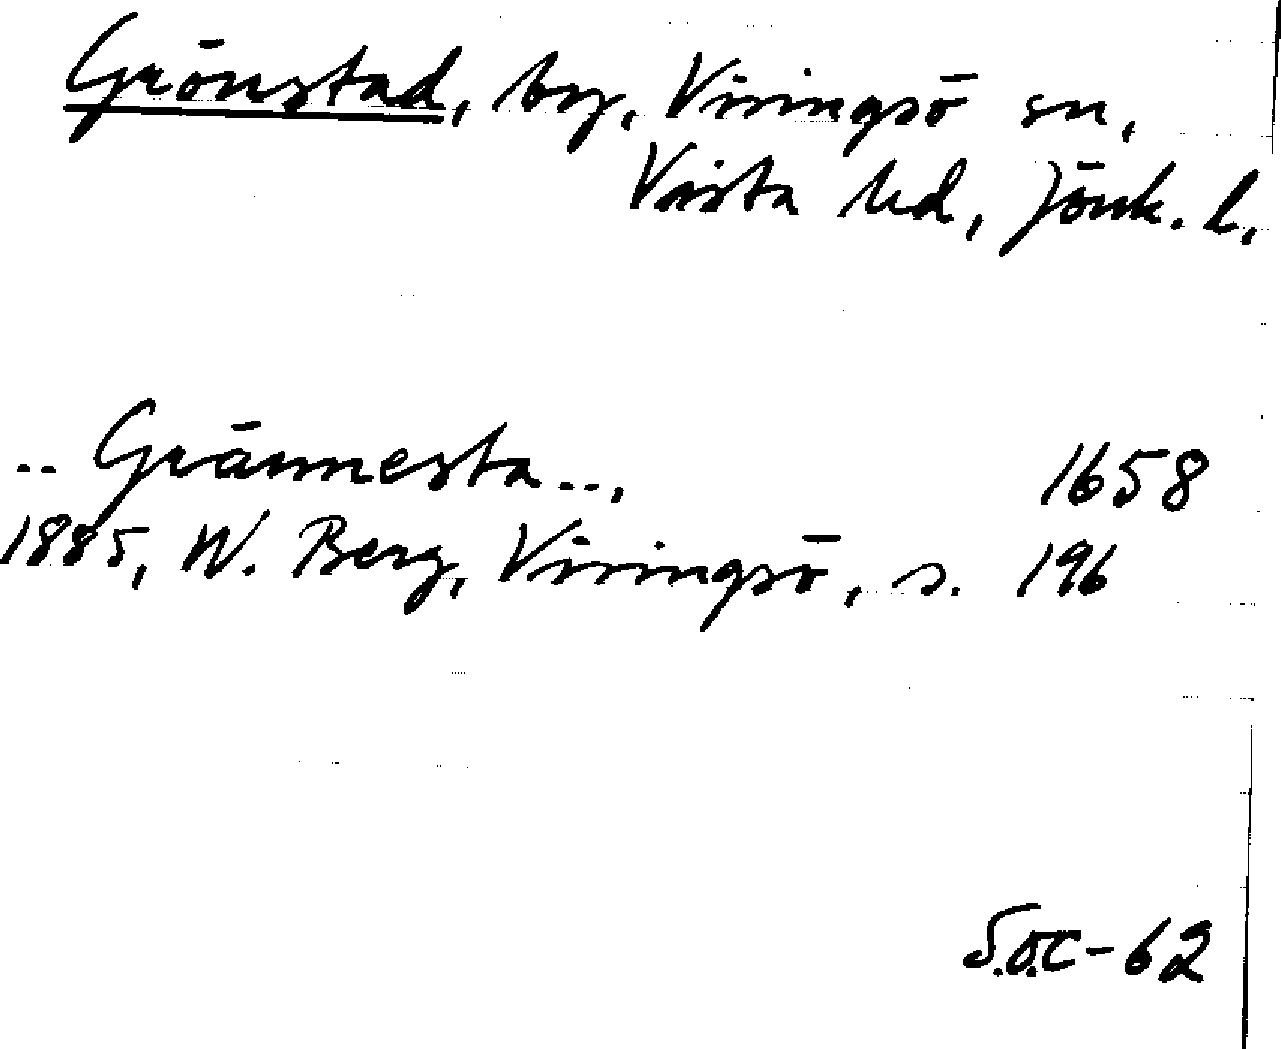 Grönstad, by, Visingsö sn,
Vista hd, Jönk. l.
.. Grännesta ..,	1658
1885, W. Berg, Visingsö, s. 196
S.O.C-62